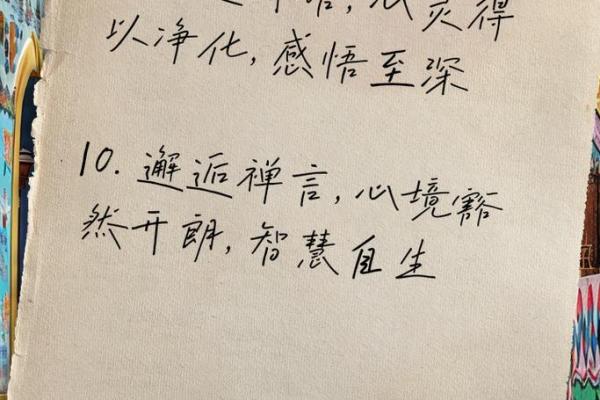 言，心灵得
以净化，感悟至深
10. 邂逅禅言，心境豁
然开朗，智慧自生